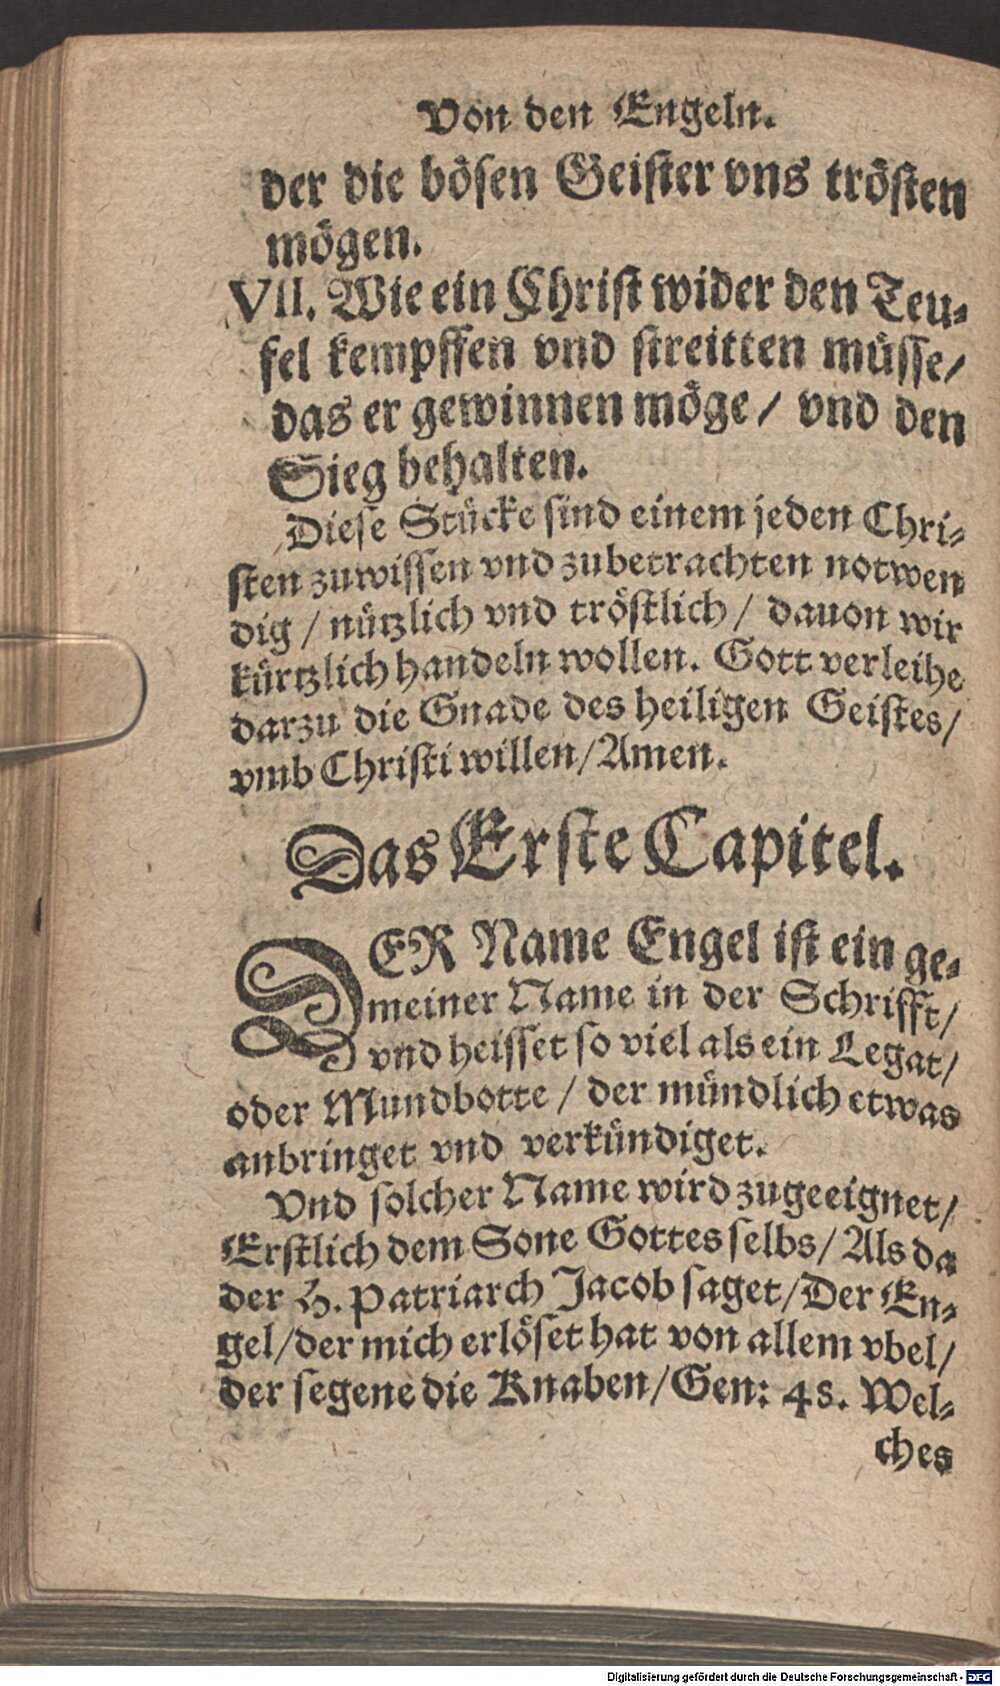 Von den Engeln.
der die bösen Geister vns trösten
mögen.
VII. Wie ein Christ wider den Teu-
fel kempffen vnd streitten müsse/
das er gewinnen möge/ vnd den
Sieg behalten.
Diese Stücke sind einem jeden Chri-
sten zuwissen vnd zubetrachten notwen
dig/ nützlich vnd tröstlich/ dauon wir
kürtzlich handeln wollen. Gott verleihe
darzu die Gnade des heiligen Geistes/
vmb Christi willen/ Amen.
Das Erste Capitel.
DER Name Engel ist ein ge-
meiner Name in der Schrifft/
vnd heisset so viel als ein Legat/
oder Mundbotte/ der mündlich etwas
anbringet vnd verkündiget.
Vnd solcher Name wird zugeeignet/
Erstlich dem Sone Gottes selbs/ Als da
der H. Patriarch Jacob saget/ Der En-
gel/ der mich erlöset hat von allem vbel/
der segene die Knaben/ Gen: 48. Wel-
ches
Digitalisierung gefördert durch die Deutsche Forschungsgemeinschaft - DFG